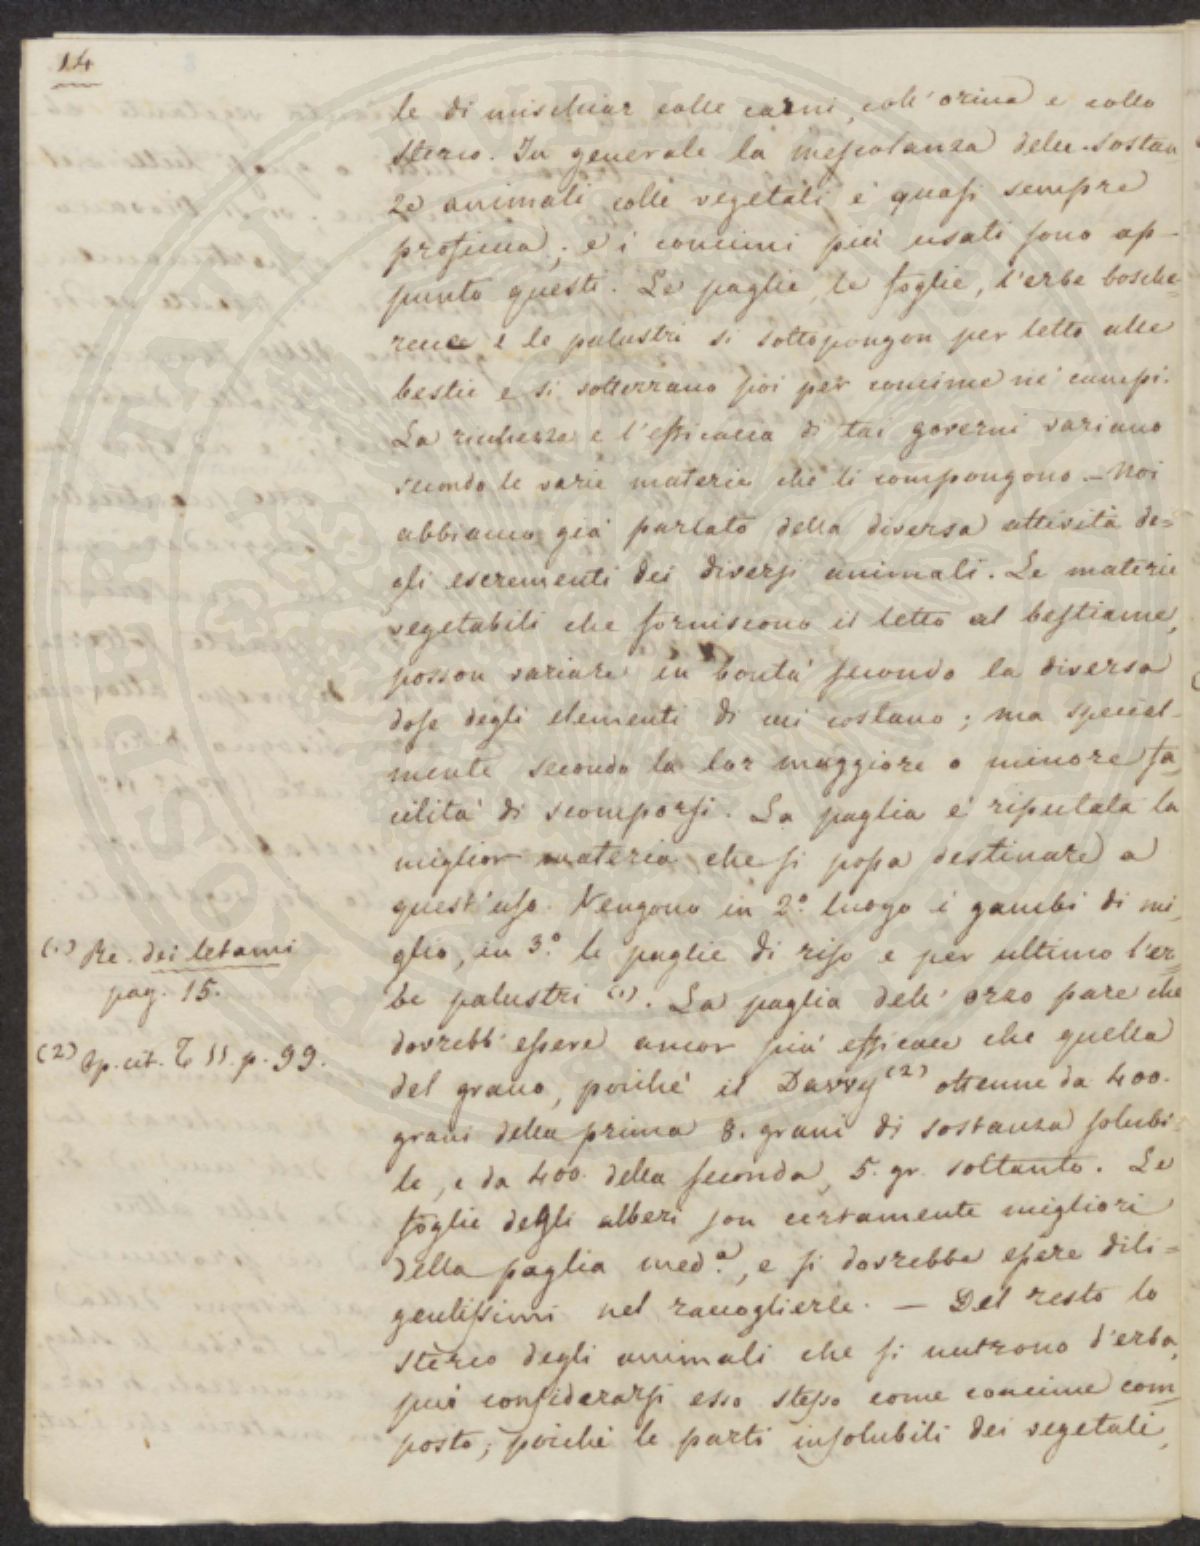 14
le di mischiar colle carni, coll'orina e collo
sterco. In generale la mescolanza delle sostan
ze animali colle vegetali è quasi sempre
proficua; e i concimi più usati sono ap-
punto questi. Le paglie, le foglie, l'erbe bosche=
recce e le palustri si sottopongon per letto alle
bestie e si sotterrano poi per concime ne' campi.
La ricchezza e l'efficacia di tai governi variano
secondo le varie materie che li compongono. — Noi
abbiamo già parlato della diversa attività de=
gli escrementi dei diversi animali. Le materie
vegetabili che forniscono il letto al bestiame,
posson variare in bontà secondo la diversa
dose degli elementi di cui costano; ma special-
mente secondo la lor maggiore o minore fa
cilità di scomporsi. La paglia è riputata la
miglior materia che si possa destinare a
quest'uso. Vengono in 2.° luogo i gambi di mi
glio, in 3.° le paglie di riso e per ultimo l'er=
be palustri (1). La paglia dell'orzo pare che
dovrebb'essere ancor più efficace che quella
del grano, poiché il Davvy (2) ottenne da 400.
grani della prima 8. grani di sostanza solubi=
le, e da 400. della seconda, 5. gr. soltanto. Le
foglie degli alberi son certamente migliori
della paglia med.a, e si dovrebbe essere dili=
gentissimi nel raccoglierle. — Del resto lo
sterco degli animali che si nutrono d'erba,
può considerarsi esso stesso come concime com
posto; poiché le parti insolubili dei vegetali,
(1) Re. dei letami
pag. 15.
(2) Op. cit. T II. p. 99.